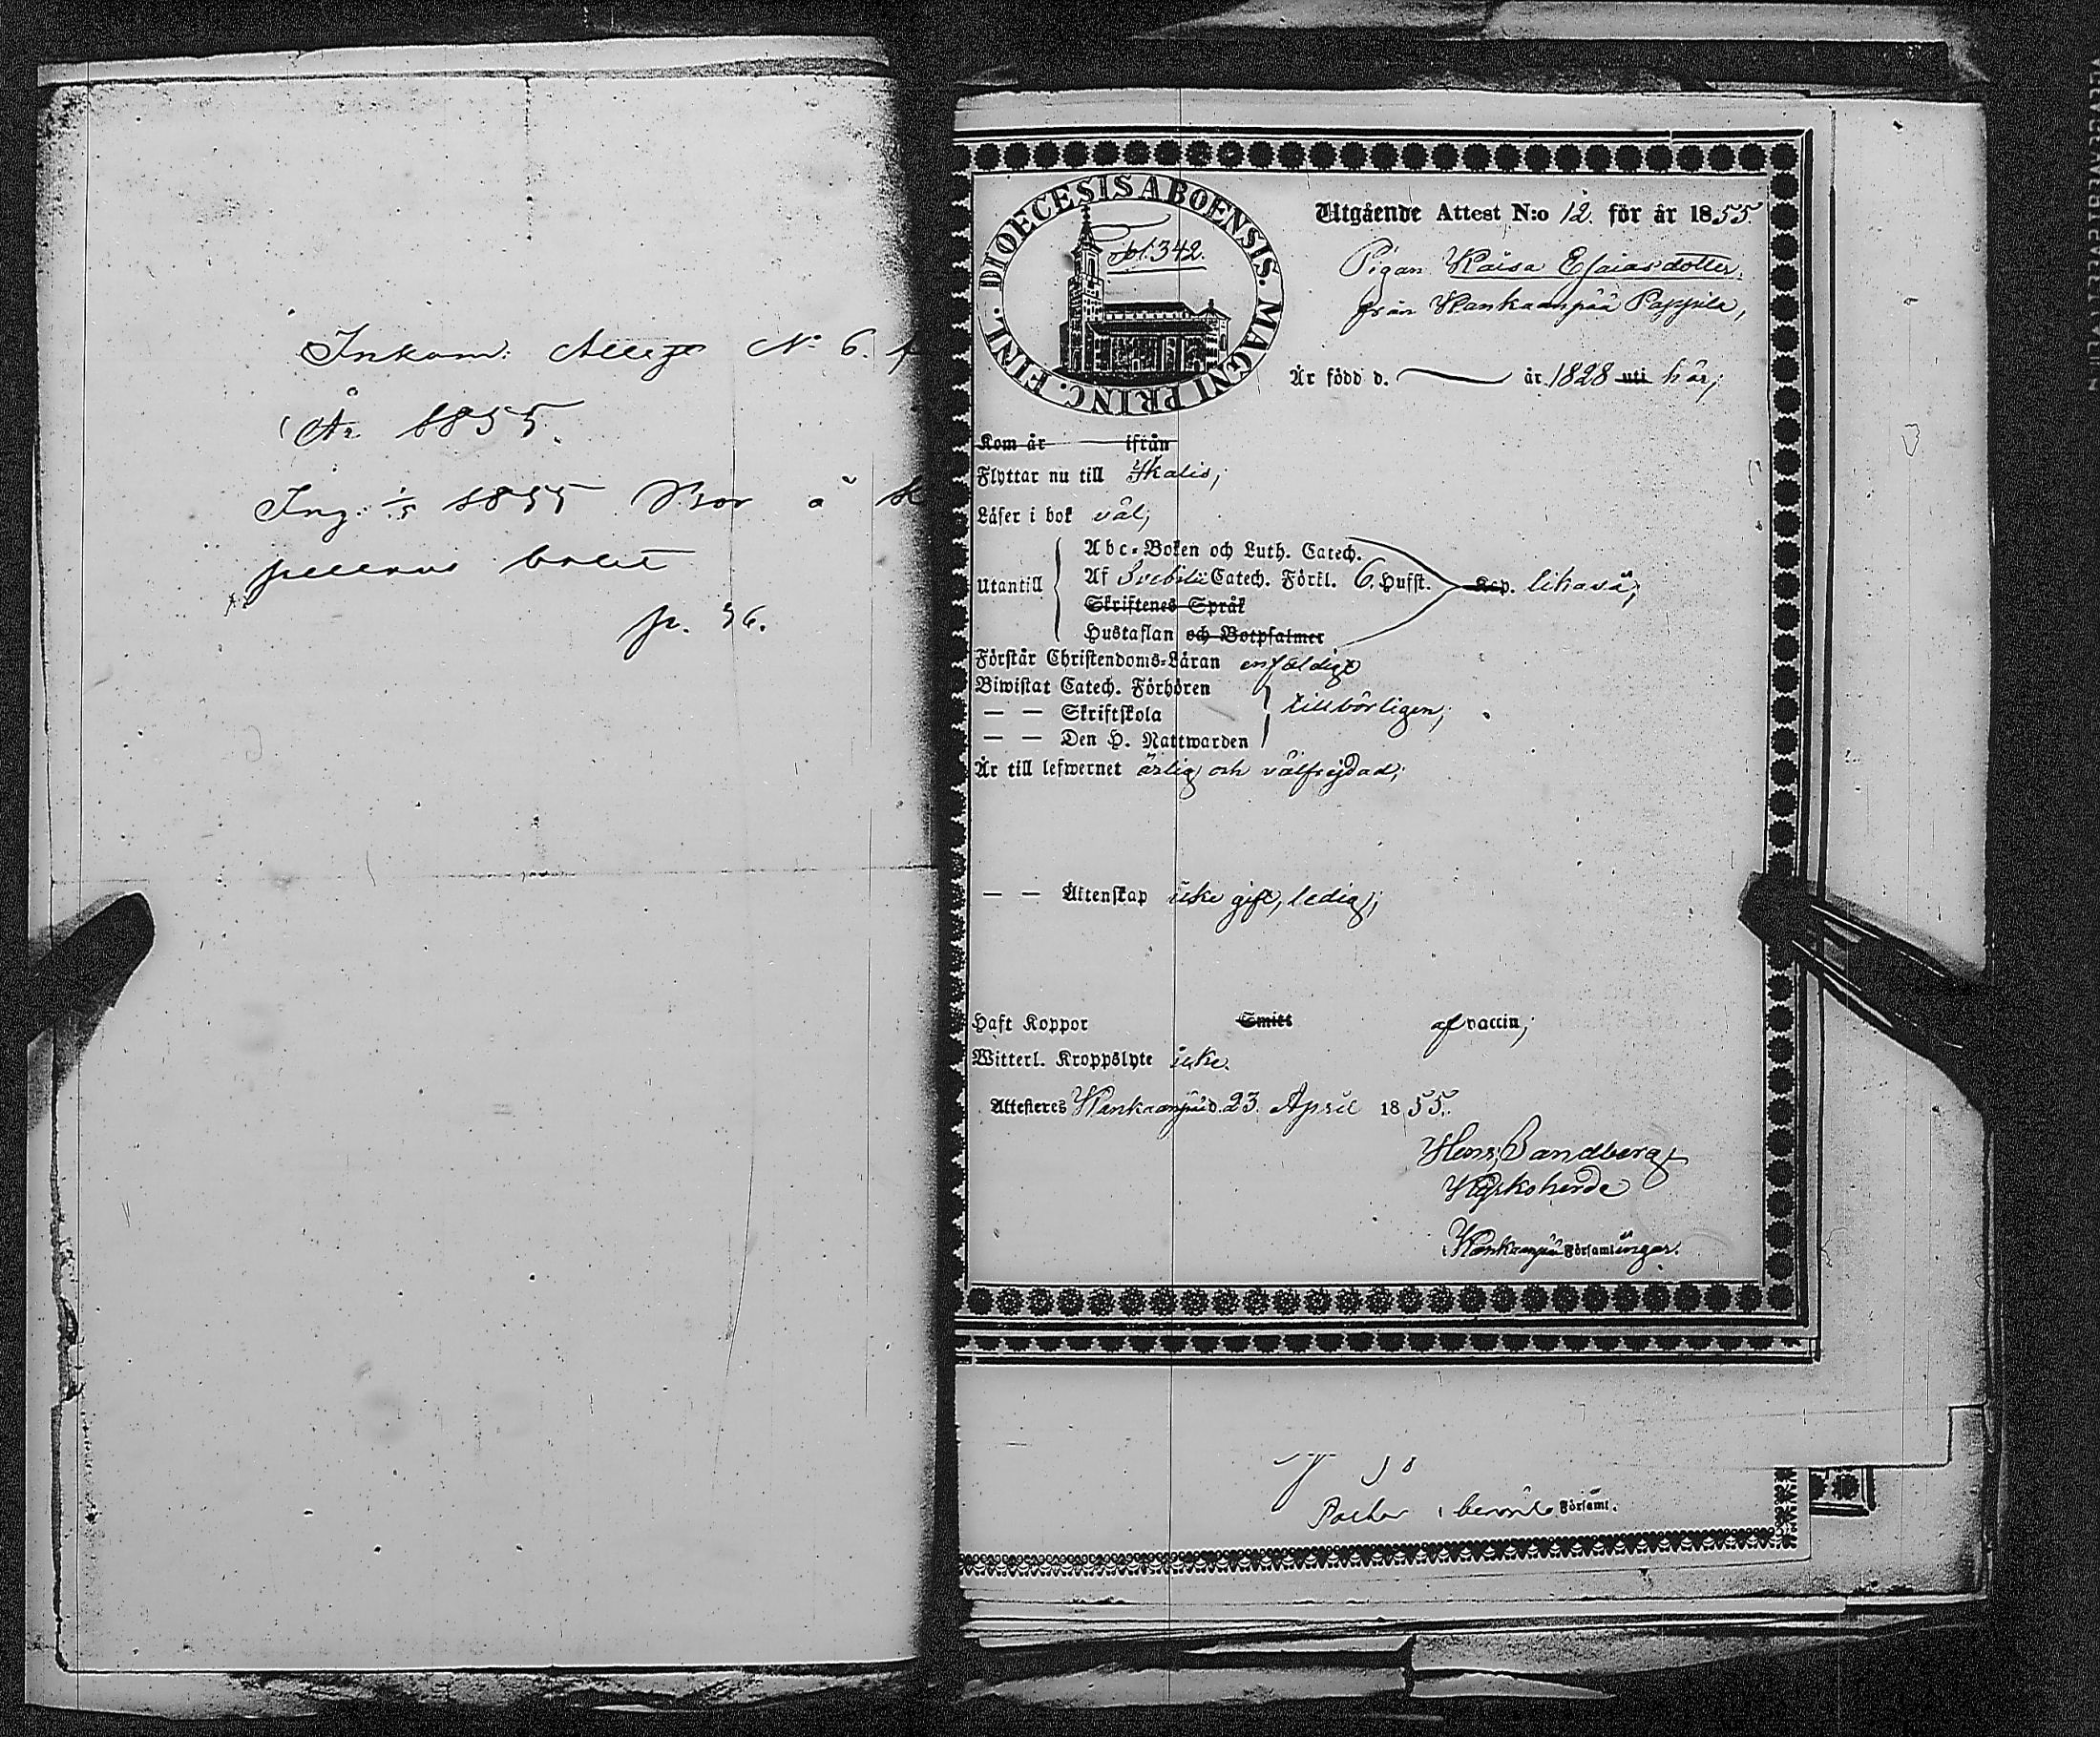 Inkom. Attest No 6. f
År 1855.
Ing. 1/5 1855 Bor å K
p. 36.
DIOECESIS ABOENSIS. MAGNI PRINC. FINL.
fol. 342.
Utgående Attest N:o 12. för år 1855.
Pigan Kaisa Esaiasdotter,
från Kankaanpää Pappila,
Är född d. år 1828 uti här;
Kom år ifrån
Flyttar nu till Ikalis;
Läser i bok väl;
Utantill
Abc-Boken och Luth. Catech.
Af Svebilii Catech. Förkl. 6. Hufst. Kap. likaså;
Skriftenes Språk
Hustaflan och Botpsalmer
Förstår Christendoms-Läran enfaldigt
Biwistat Catech. Förhören
— — Skriftskola tillbörligen;
— — Den H. Nattwarden
Är till lefwernet ärlig och välfrejdad;
— — Äktenskap icke gift, ledig;
Haft Koppor Smitt af vaccin;
Witterl. Kroppslyte icke.
Attesteras Kankaanpää d. 23. April 1855.
Hens. Sandberg
Kyrkoherde
i Kankaanpää Församlingar.
Pastor i berörde Förs̈aml.